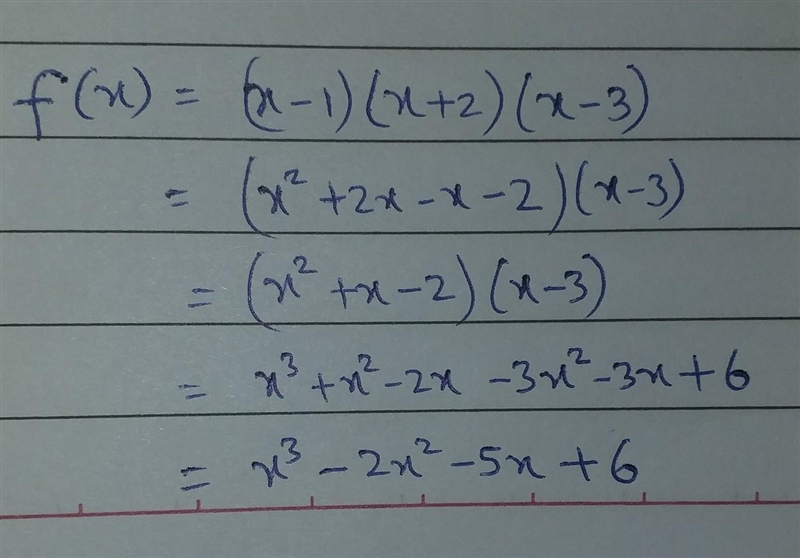 f(x) = (x-1)(x+2)(x-3)
= (x² +2x -x -2)(x-3)
= (x² +x -2)(x-3)
= x³ +x² -2x -3x² -3x +6
= x³ -2x² -5x +6